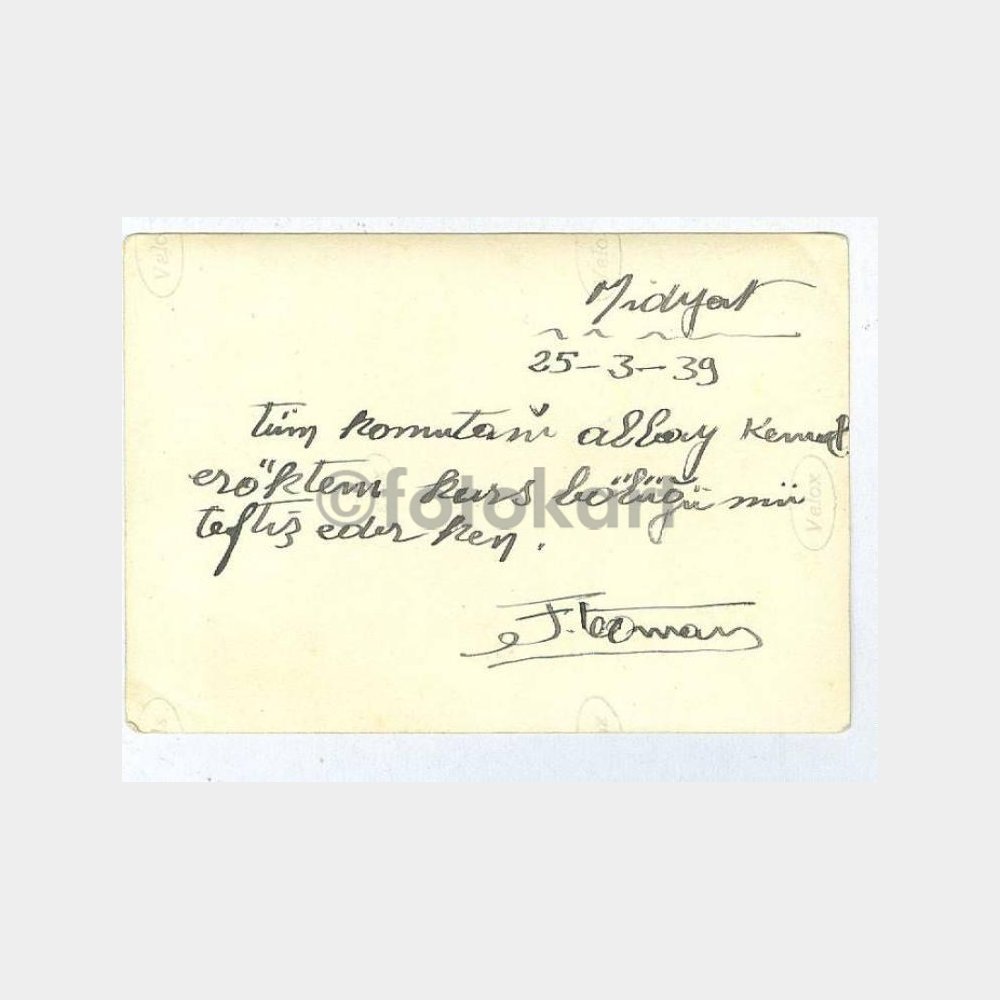 Midyat
25-3-39
tüm komutanı albay Kemal
eröktem kurs bölüğü nü
teftiş eder ken.
F. Teoman
©fotokart
Velox
Velox
Velox
Velox